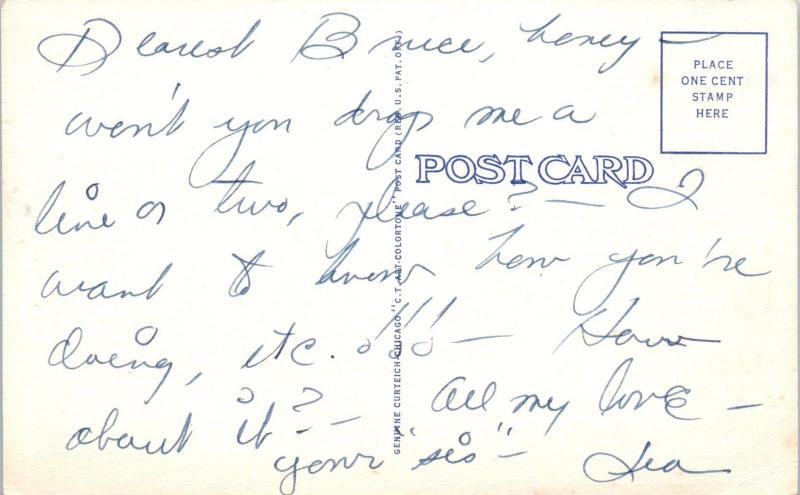 Dearest Bruce, honey —
won't you drop me a
line or two, please? — I
want to know how you're
doing, etc. !!! — How
about it?? — All my love —
your "sis" —
PLACE
ONE CENT
STAMP
HERE
POST CARD
GENUINE CURTEICH-CHICAGO "C.T. ART-COLORTONE" POST CARD (REG. U.S. PAT. OFF.)